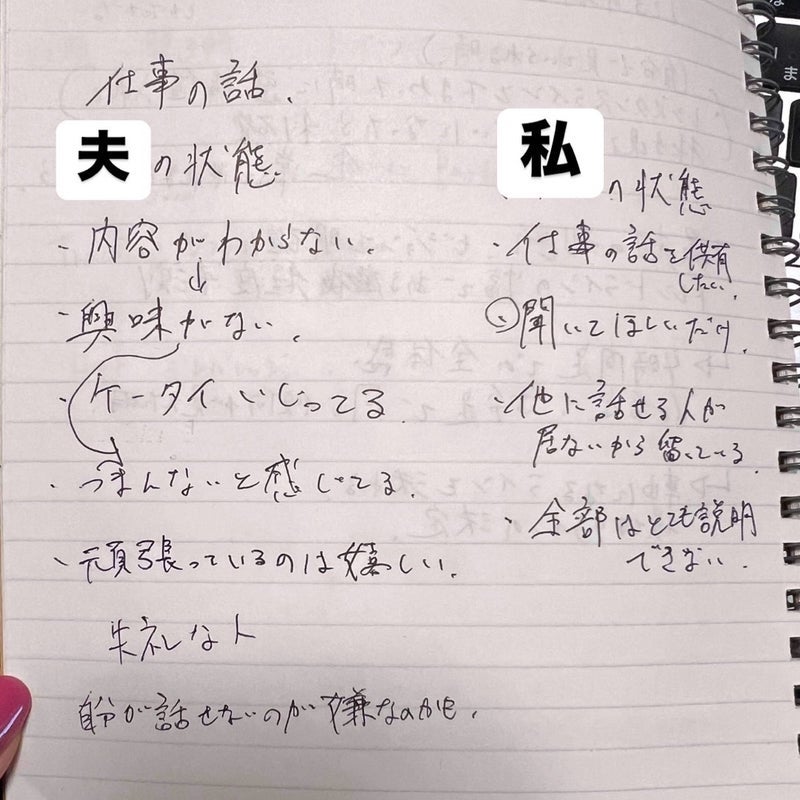 仕事の話.
夫の状態
・内容がわからない.
↓
・興味がない.
・ケータイいじってる
・つまんないと感じてる.
・頑張っているのは嬉しい.
失礼な人
自分が話せないのが嫌なのかも.
私の状態
・仕事の話を供有
したい.
・聞いてほしいだけ.
・他に話せる人が
居ないから溜っている.
・全部はとても説明
できない.